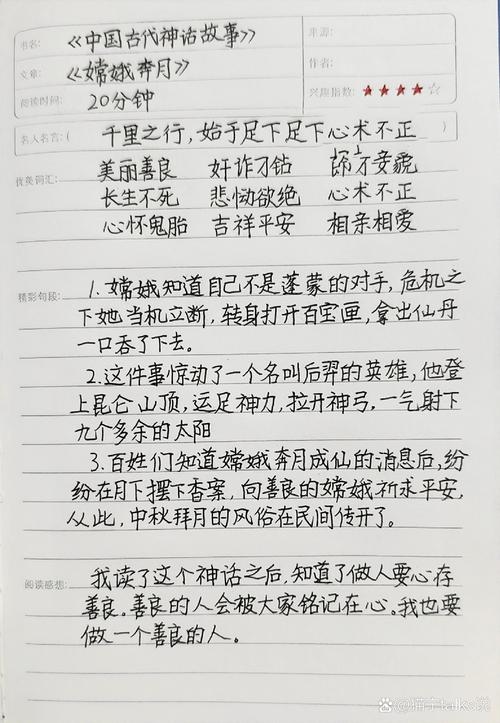 书名: 《中国古代神话故事》 来源:
文章: 《嫦娥奔月》 作者:
阅读时间: 20分钟 兴趣指数: ★★★★☆
名人名言: ( 千里之行，始于足下足下心术不正
优美词汇: 美丽善良 奸诈刁钻
长生不死 悲恸欲绝 心术不正
心怀鬼胎 吉祥平安 相亲相爱
精彩句段: 1.嫦娥知道自己不是蓬蒙的对手，危机之
下她当机立断，转身打开百宝匣，拿出仙丹
一口吞了下去。
2.这件事惊动了一个名叫后羿的英雄，他登
上昆仑山顶，运足神力，拉开神弓，一气射下
九个多余的太阳
3.百姓们知道嫦娥奔月成仙的消息后，纷
纷在月下摆下香案，向善良的嫦娥祈求平安，
从此，中秋拜月的风俗在民间传开了。
阅读感想: 我读了这个神话之后，知道了做人要心存
善良。善良的人会被大家铭记在心。我也要
做一个善良的人。